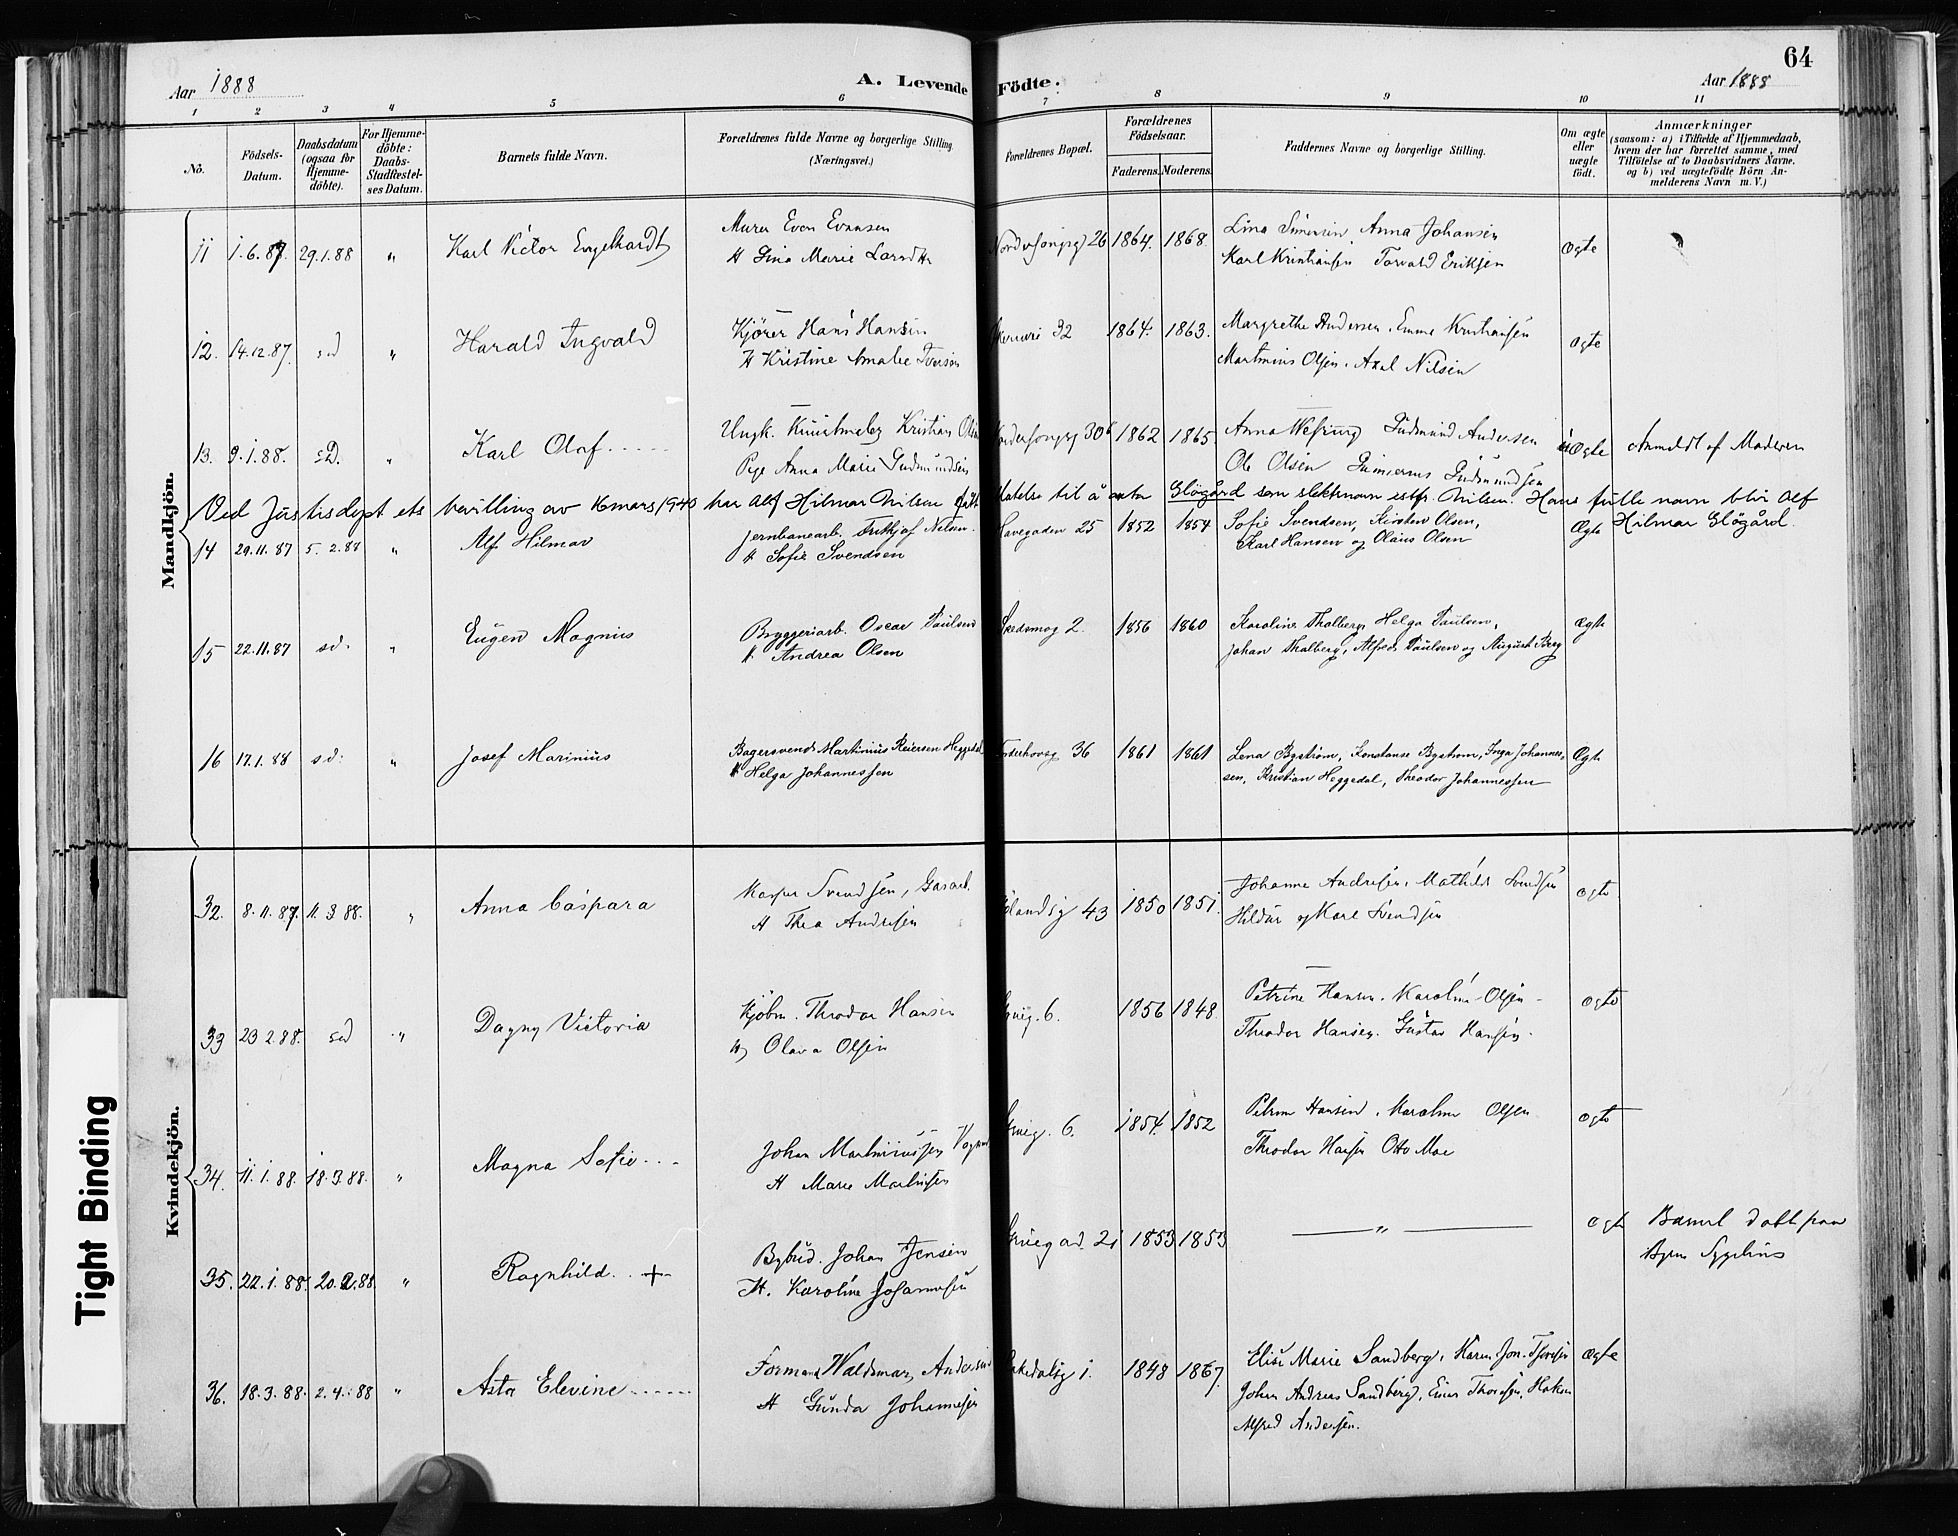 64
Aar 1888
A. Levende Födte.
Aar 1888
1 2 3 4 5 6 7 8 9 10 11
No.
Födsels-Datum.
Daabsdatum (ogsaa for Hjemme-döbte).
For Hjemme-döbte: Daabs-Stadfæstel-ses Datum.
Barnets fulde Navn.
Forældrenes fulde Navne og borgerlige Stilling. (Næringsvei.)
Forældrenes Bopæl.
Forældrenes Födselsaar.
Faderens. Moderens.
Faddernes Navne og borgerlige Stilling.
Om ægte eller uægte födt.
Anmærkninger
(saasom: a) i Tilfælde af Hjemmedaab,
hvem der har forrettet samme, med
Tilföielse af to Daabsvidners Navne.
og b) ved uægtefödte Börn An-
melderens Navn m. V.)
Mandkjön.
11 1.6.87. 29.1.88 " Karl Victor Engelhardt
Murer Even Evensen
H Lina Marie Larsdtr
26 1864. 1868.
Lina Simensen, Anna Johansen
Karl Kristiansen, Torvald Eriksen
Ægte
12. 14.12.87. sd " Harald Ingvald
Kjörer Hans Hansen
H Kristine Amalie Iversen
32 1864. 1863.
Margrethe Andersen, Emma Kristiansen
Martinius Olsen, Axel Nilsen
Ægte
13. 9.1.88. sD. " Karl Olaf
Ungk. Kristian Olsen
Pige Anna Marie Gudmundsen
30b 1862 1865.
Anna Gudmund Andersen
Ole Olsen Gudmundsen
uÆgte Anmeldt af Moderen
Ved Justisdept ets bevilling av 16 mars 1940 har Alf Hilmar Nilsen fått latelse til å anta Glögård som slektsnavn istf. Nilsen. Hans fulle navn blir Alf
Hilmar Glögård.
14 29.11.87 5.2.88 " Alf Hilmar
Jernbanearb. Fritkjof Nelsen.
H Sofie Svendsen
Havegaden 25 1852 1854
Sofie Svendsen, Kirsten Olsen,
Karl Hansen og Olaus Olsen
Ægte
15 22.11.87 sd. " Eugen Magnus
Bryggeriarb. Oscar Paulsen
H. Andrea Olsen
Skedsmog 2. 1856 1860
Karoline Thalberg, Helga Paulsen,
Johan Thalberg, Alfred Paulsen og August Berg
Ægte
16 17.1.88 sd. " Josef Marinius
Bagersvend Martinius Reiersen Heggedal
H Helga Johannessen
36 1861 1861
Lena Bystrøm, Konstanse Bystrøm, Inga Johannes-
sen, Kristian Heggedal, Theodor Johannessen
Ægte
Kvindekjön.
32. 8.11.87. 11.3.88. " Anna Caspara
Kasper Svendsen, Gasarb.
H Thea Andresen
43 1850 1851.
Johanne Andresen, Mathilde Svendsen
Hildur og Karl Svendsen
Ægte
33 23.2.88. sd " Dagny Victoria
Kjöbm. Theodor Hansen
H Olava Olsen
6. 1856 1848.
Petrine Hansen. Karoline Olsen
Theodor Hansen. Gustav Hansen.
Ægte
34. 11.1.88. 18.3.88. " Magna Sofie
Johan Martiniussen
H Marie Martinsen
6. 1854. 1852
Petrine Hansen, Karoline Olsen
Theodor Hansen Otto Moe
Ægte
35. 22.1.88. 20.2.88 " Ragnhild. +
Bybud. Johan Jensen
H. Karoline Johannesen
21 1853 1853
"
Ægte
36. 18.3.88. 2.4.88 " Asta Elevine
Formand Waldemar Andersen
H Gunda Johannesen
1. 1848 1867.
Elise Marie Sandberg, Karen Thoresen
Johan Andreas Sandberg, Einar Thoresen, Hakon
Alfred Andersen.
Ægte
Tight Binding